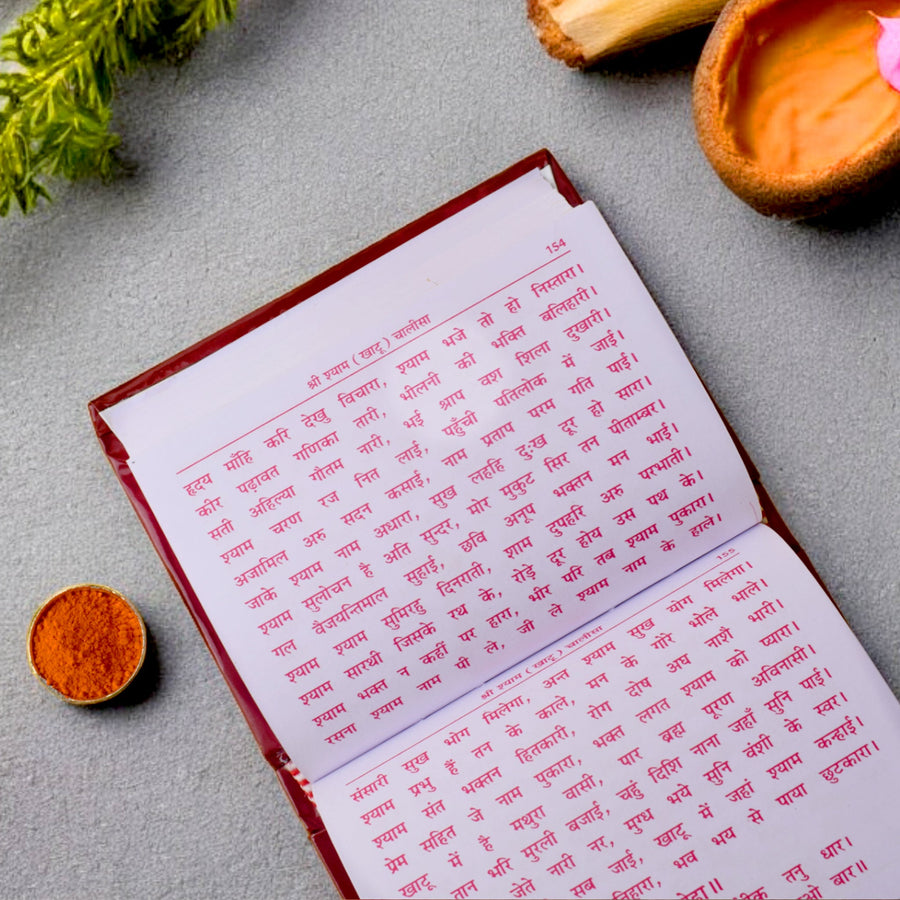 154
श्री श्याम ( खाटू ) चालीसा
हृदय माँहि करि देखु विचारा, श्याम भजे तो हो निस्तारा।
कीर पढ़ावत गणिका तारी, भीलनी की भक्ति बलिहारी।
सती अहिल्या गौतम नारी, भई श्राप वश शिला दुखारी।
श्याम चरण रज नित लाई, पहुँची पतिलोक में जाई।
अजामिल अरु सदन कसाई, नाम प्रताप परम गति पाई।
जाके श्याम नाम अधारा, सुख लहहि दुःख दूर हो सारा।
श्याम सुलोचन है अति सुन्दर, मोर मुकुट सिर तन पीताम्बर।
गल वैजयन्तिमाल सुहाई, छवि अनूप भक्तन मन भाई।
श्याम श्याम सुमिरहु दिनराती, शाम दुपहरि अरु परभाती।
श्याम सारथी जिसके रथ के, रोड़े दूर होय उस पथ के।
श्याम भक्त न कहीं पर हारा, भीर परि तब श्याम पुकारा।
रसना श्याम नाम पी ले, जी ले श्याम नाम के हाले।
155
श्री श्याम ( खाटू ) चालीसा
संसारी सुख भोग मिलेगा, अन्त श्याम सुख योग मिलेगा।
श्याम प्रभु हैं तन के काले, मन के गोरे भोले भाले।
श्याम संत भक्तन हितकारी, रोग दोष अघ नाशै भारी।
प्रेम सहित जे नाम पुकारा, भक्त लगत श्याम को प्यारा।
खाटू में है मथुरा वासी, पार ब्रह्म पूरण अविनासी।
तान भरि मुरली बजाई, चहुं दिशि नाना जहाँ सुनि पाई।
जेते नारी नर, मुग्ध भये सुनि वंशी के स्वर।
सब जाई, खाटू में जहां श्याम कन्हाई।
भव भय से पाया छुटकारा।
तनु धार।
बार॥